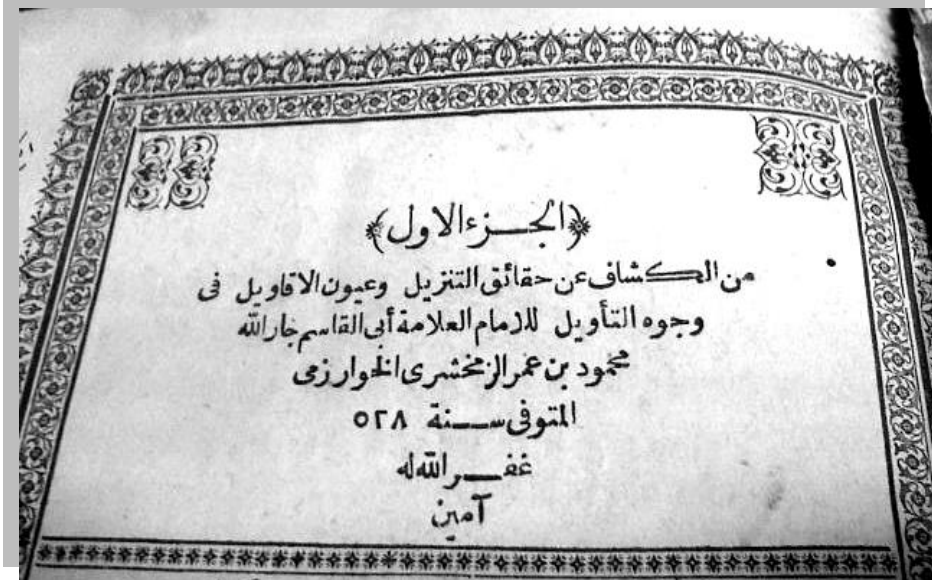 ﴿الجزء الاول﴾
من الكشاف عن حقائق التنزيل وعيون الاقاويل فى
وجوه التأويل للامام العلامة أبى القاسم جار الله
محمود بن عمر الزمخشرى الخوارزمى
المتوفى سنة ٥٢٨
غفر الله له
آمين